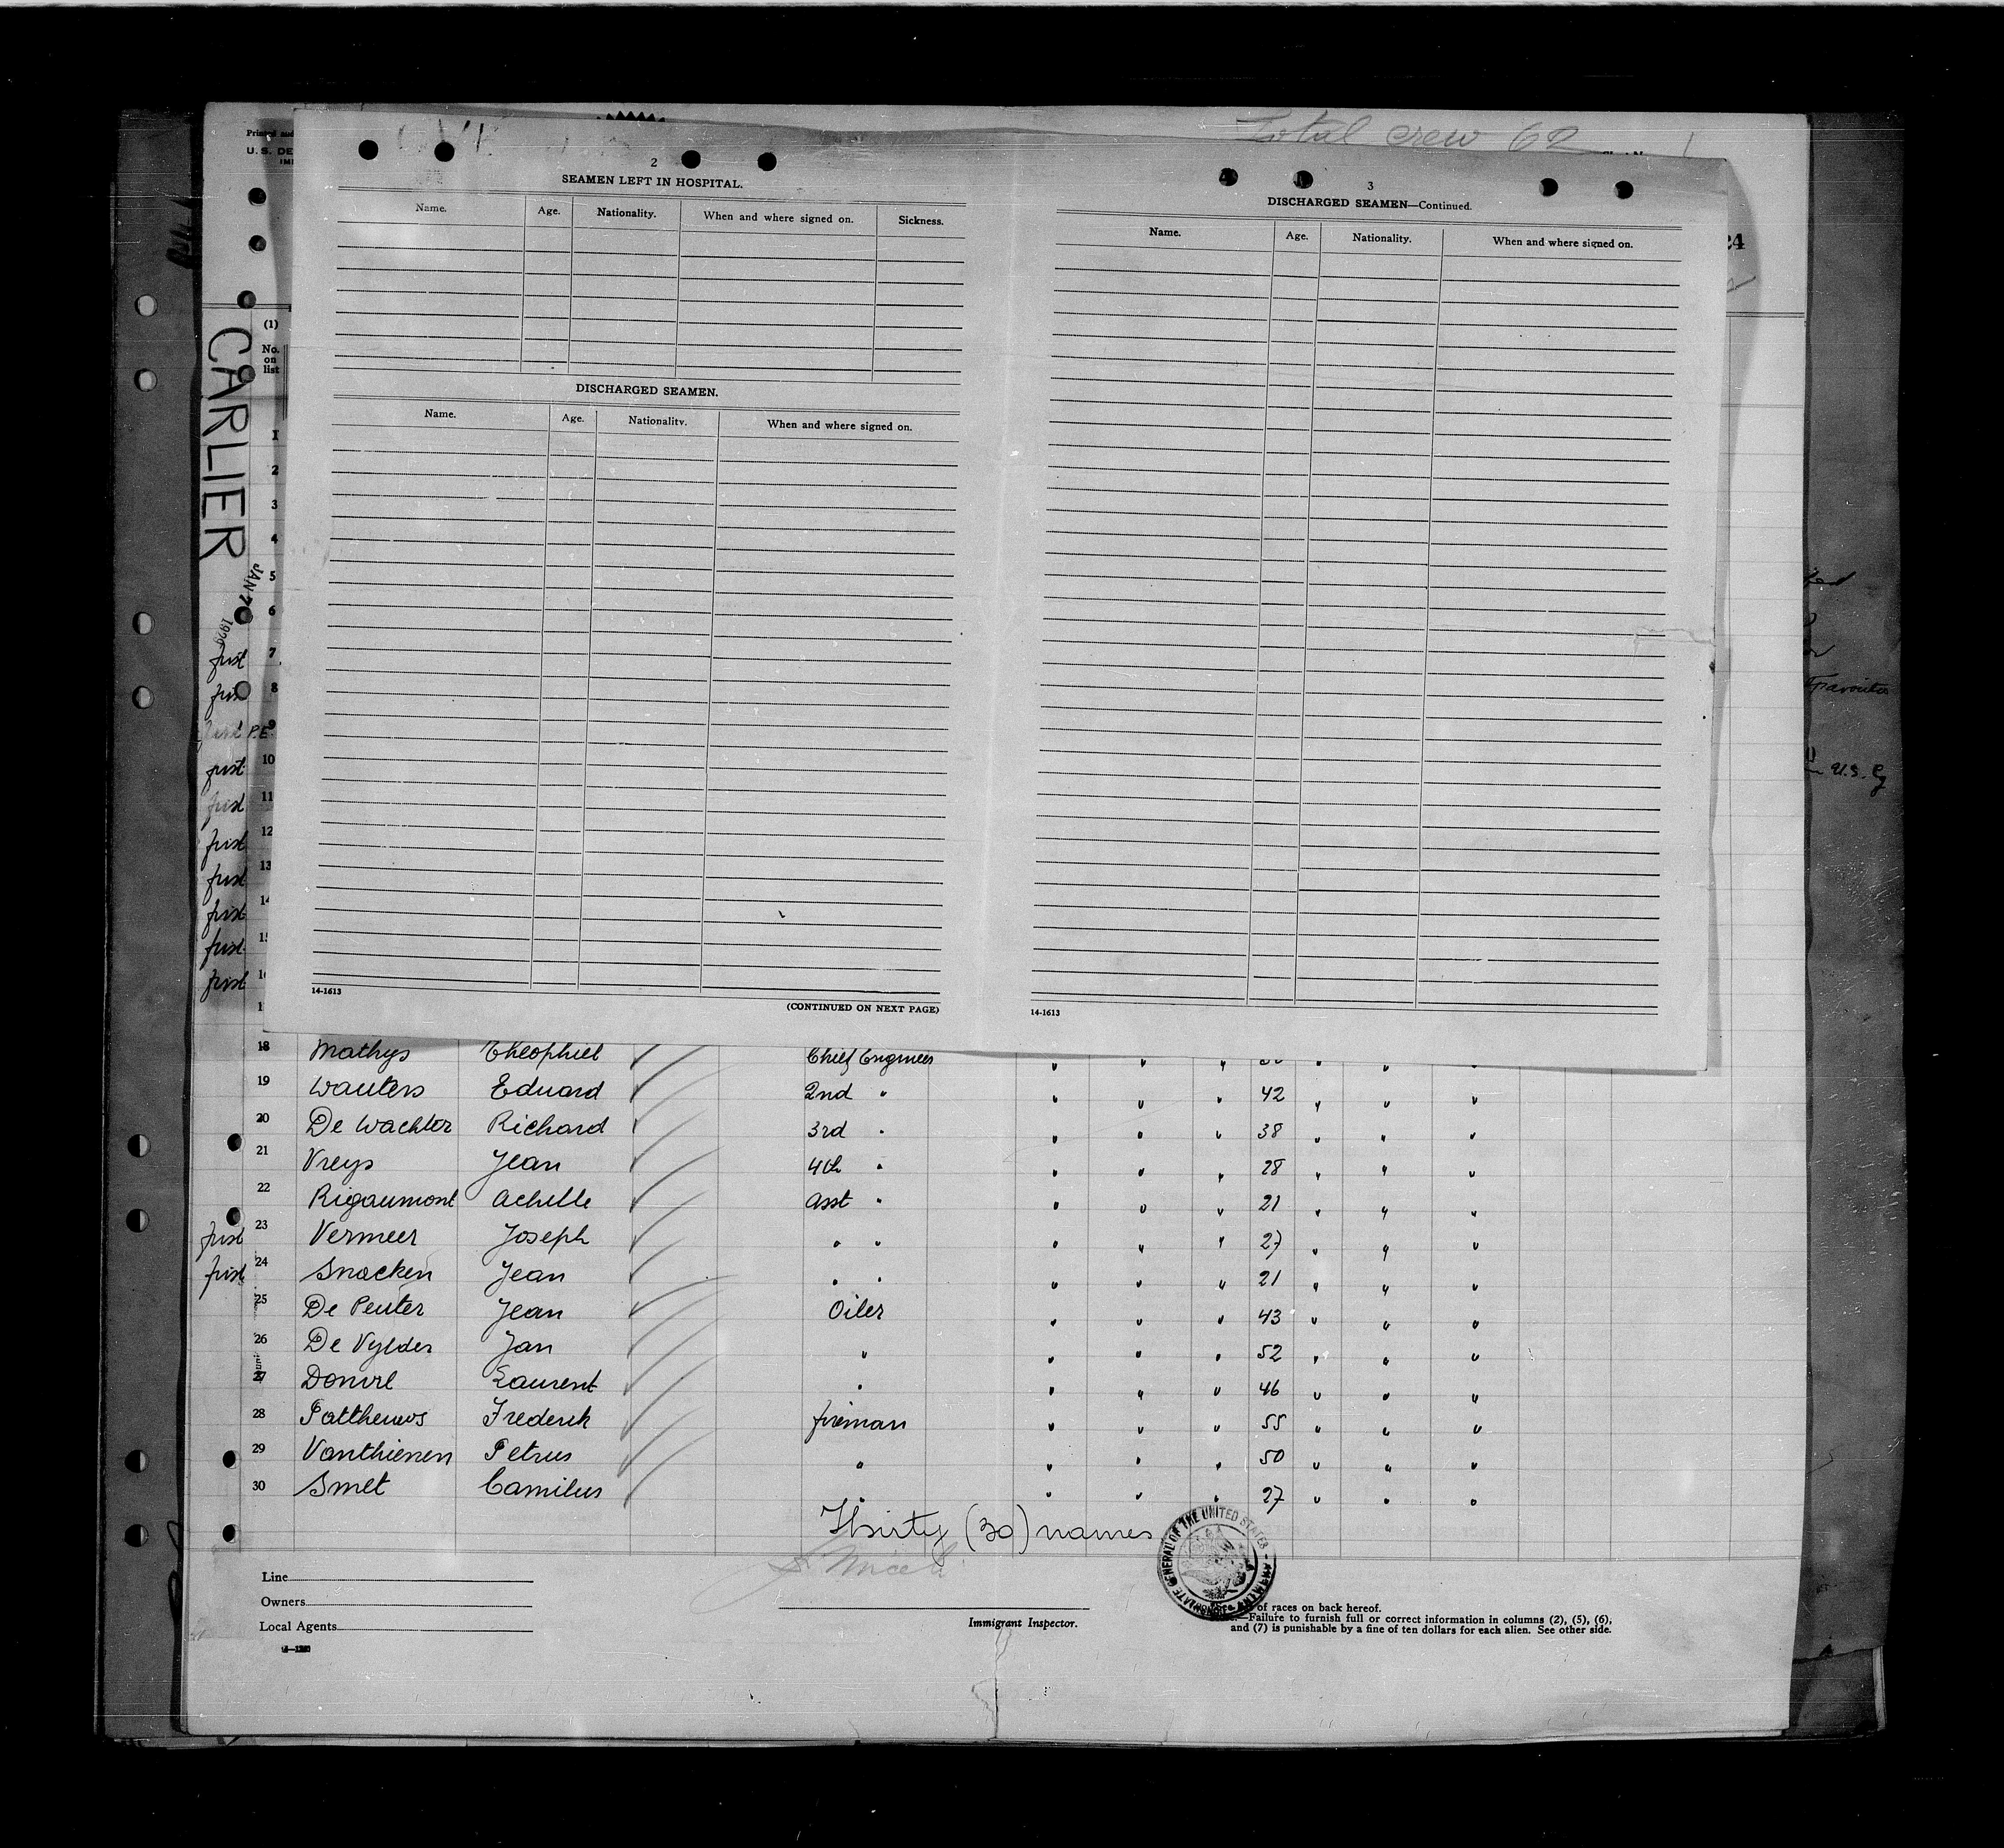 Total crew 62
U. S. DE
24
2
SEAMEN LEFT IN HOSPITAL.
Name. Age. Nationality. When and where signed on. Sickness.
DISCHARGED SEAMEN.
Name. Age. Nationality. When and where signed on.
14-1613
(CONTINUED ON NEXT PAGE)
3
DISCHARGED SEAMEN—Continued.
Name. Age. Nationality. When and where signed on.
14-1613
CARLIER
JAN 7 1929
(1)
No.
on
list
1
2
3
4
5
6
first 7
first 8
first P.E. 9
first 10
first 11
first 12
first 13
first 14
first 15
first 16
18 Mathys Theophiel Chief Engineer
19 Wauters Eduard 2nd " " " " 42 " " "
20 De Wachter Richard 3rd " " " " 38 " " "
21 Vreys Jean 4th " " " " 28 " " "
22 Rigaumont Achille Asst " " " " 21 " " "
first 23 Vermeer Joseph " " " " " 27 " " "
first 24 Snacken Jean " " " " " 21 " " "
25 De Peuter Jean Oiler " " " 43 " " "
26 De Vylder Jan " " " " 52 " " "
27 Laurent " " " " 46 " " "
28 Pattheuws Frederik fireman " " " 55 " " "
29 Vanthienen Petrus " " " " 50 " " "
30 Smet Camilus " " " " 27 " " "
Thirty (30) names
Line
Owners
Local Agents
Immigrant Inspector.
of races on back hereof.
—Failure to furnish full or correct information in columns (2), (5), (6),
and (7) is punishable by a fine of ten dollars for each alien. See other side.
in U.S.